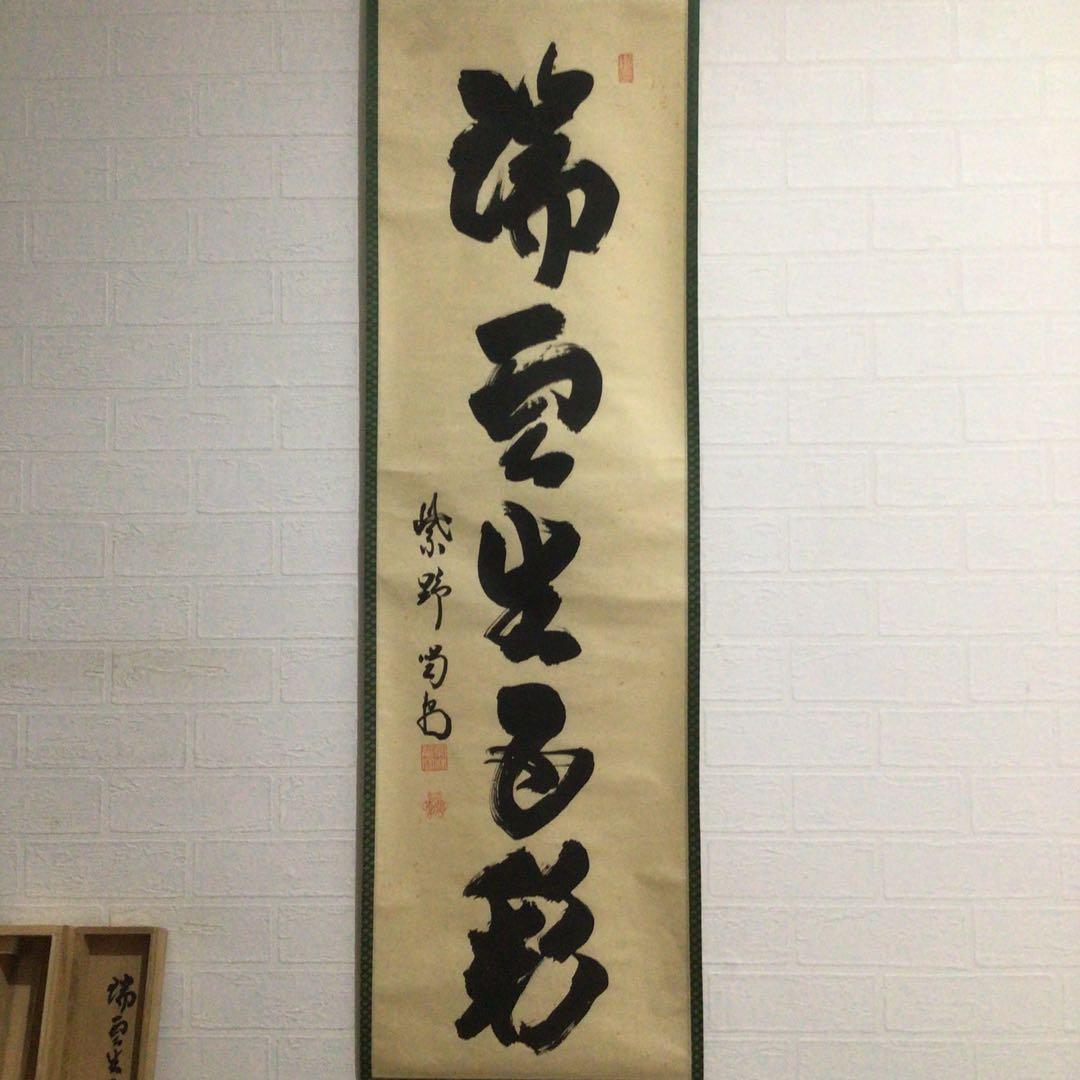 瑞雲生五彩
紫野
瑞雲生